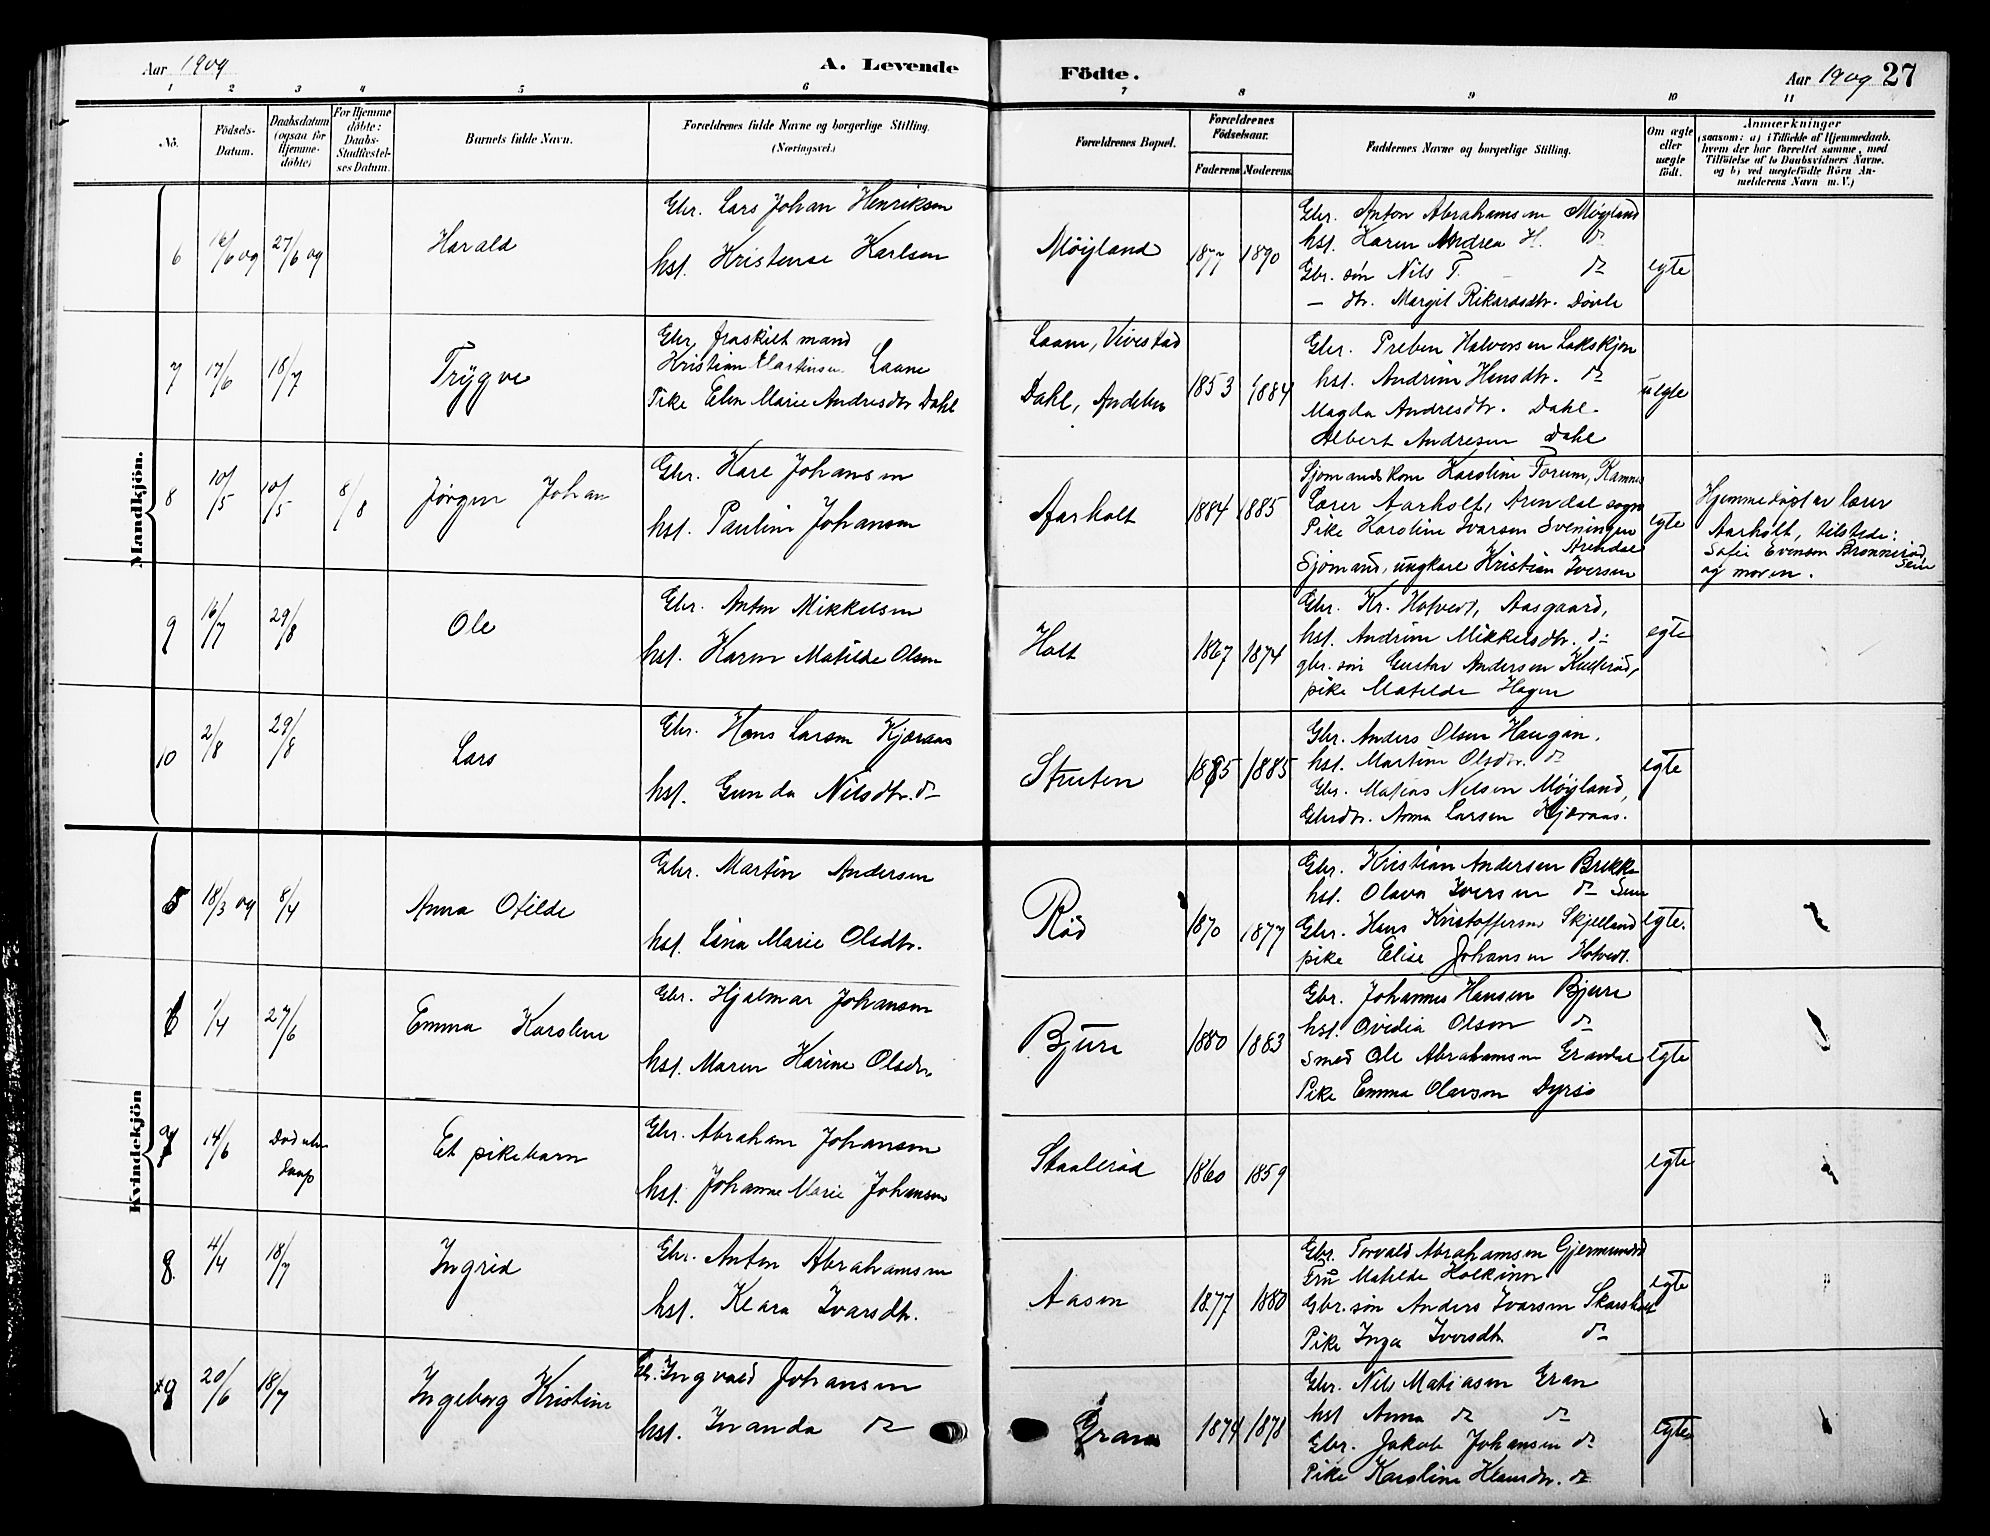 Aar 1909
A. Levende
Födte.
Aar 1909 27
1 2 3 4 5 6 7 8 9 10 11
No.
Födsels-
Datum.
Daabsdatum
(ogsaa for
Hjemme-
döbte)
For Hjemme
döbte:
Daabs-
Stadfæstel-
ses Datum.
Barnets fulde Navn.
Forældrenes fulde Navne og borgerlige Stilling.
(Næringsvei.)
Forældrenes Bopæl.
Forældrenes
Födselsaar.
Faderens Moderens
Faddernes Navne og borgerlige Stilling.
Om ægte
eller
uægte
födt.
Anmærkninger
(saasom: a) i Tilfælde af Hjemmedaab.
hvem der har forrettet samme, med
Tilföielse af to Daabsvidners Navne.
og b) ved uægtefödte Börn An-
melderens Navn m. V.)
Mandkjön.
6 16/6 09 27/6 09 Harald
Gbr. Lars Johan Henriksen
hst. Kristense Karlsen
Möyland 1877 1890
Gbr. Anton Abrahamsen Møyland
hst. Karen Andrea H. do
Gbr. søn Nils T. do
— dtr. Margit Rikardsdtr. Dövle
egte
7 17/6 18/7 Trygve
Gbr, fraskilt mand
Kristian Martinsen Laane
Pike Elen Marie Andresdtr Dahl
Laan, Vivestad
Dahl, Andebu 1853 1884
Gbr. Preben Halvorsen
hst. Andrine Hansdtr. do
Magda Andresdtr. Dahl.
Albert Andresen Dahl
uegte
8 10/5 10/5 8/8 Jørgen Johan
Gbr. Kare Johansen
hst. Pauline Johansen
Aarholt 1884 1885
Sjømandskone Karoline Torum,
Lærer Aarholt, Arendal sogn
Pike Karoline Ivarsen Sveningen
Arendal
Sjømand, ungkare Kristian Iversen
egte
Hjemmedøpt av lærer
Aarholt, tilstede:
Sofie Evensen Brønnerød,
Sem
og moren.
9 16/7 29/8 Ole
Gbr. Anton Mikkelsen
hst. Karen Matilde Olsen
Holt 1867 1874
Gbr. Kr. Hotvedt, Aasgaard,
hst. Andrine Mikkelsdtr. do
gbr. søn Gustav Andersen
pike Matilde Hagen
egte
10 2/8 29/8 Lars
Gbr. Hans Larsen Kjæraas
hst. Gunda Nilsdtr. do
Struten 1885 1885
Gbr. Anders Olsen Haugan.
hst. Martine Olsdtr. do
Gbr. Matias Nilsen Møyland,
Gbrdtr. Anna Larsen Kjæraas.
egte
Kvindekjön
5 18/3 09 8/4 Anna Otilde
Gbr. Martin Andersen
hst. Lina Marie Olsdtr.
Rød 1870 1877
Gbr. Kristian Andersen Brekke
hst. Olava Iversen do Sem
Gbr. Hans Kristoffersen Skjelland
pike Elise Johansen Hotvedt.
egte.
6 1/4 27/6 Emma Karoline
Gbr. Hjalmar Johansen
hst. Maren Karine Olsdtr.
Bjure 1880 1883
Gbr. Johannes Hansen Bjure
hst. Ovidia Olsen do
Smed Ole Abrahamsen Gravdal
Pike Emma Olavsen Dyrsø
egte
7 14/6 Død uten
daap
Et pikebarn
Gbr. Abraham Johansen
hst. Johanne Marie Johansen
Staalerød 1860 1859
egte
8. 4/4 18/7 Ingrid
Gbr. Anton Abrahamsen
hst. Klara Ivarsdtr.
Aasen 1877 1880
Gbr. Torvald Abrahamsen Gjermundrød
Fru Matilde
Gbr. søn Anders Ivarsen Skarsholt
Pike Inga Iversdtr. do
egte
9 20/6 18/7 Ingeborg Kristine
Gbr. Ingvald Johansen
hst. Inanda do
Gran 1874 1878
Gbr. Nils Matiasen Gran
hst Anna do do
Gbr. Jakob Johansen do
Pike Karoline Klausdtr. do
egte